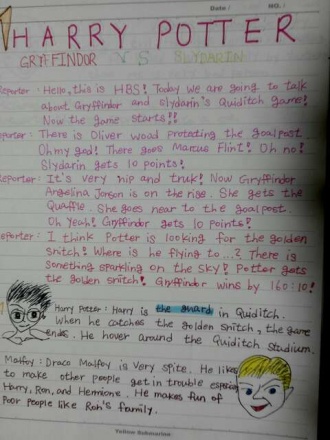 Date : NO. :
HARRY POTTER
GRYFFINDOR VS SLYDARIN
Reporter : Hello, this is HBS! Today we are going to talk
about Gryffindor and slydarin's Quiditch game!
Now the game starts!!
Reporter : There is Oliver wood protating the goalpost.
Oh my god! There goes Marcus Flint! Oh no!
Slydarin gets 10 points!
Reporter : It's very nip and truk! Now Gryffindor
Angelina Jonson is on the rise. She gets the
Quaffle. She goes near to the goalpost.
Oh Yeah! Gryffindor gets 10 Points!
Reporter : I think Potter is looking for the golden
snitch! Where is he flying to...? There is
Something sparkling on the sky! Potter gets
the golden snitch! Gryffindor wins by 160:10!
Harry Potter : Harry is the guard in Quiditch.
When he catches the golden snitch, the game
ends. He hover around the Quiditch Stadium.
Malfoy : Draco Malfoy is very spite. He likes
to make other people get in trouble
Harry, Ron, and Hermione. He makes fun of
Poor people like Ron's family.
Yellow Submarine